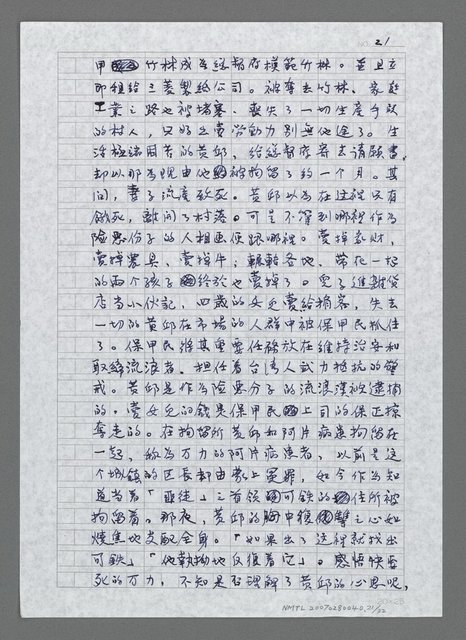 NO. 21
甲 竹林成為總督府模範竹林。並且立
即租給三菱製紙公司。被奪去竹林、家庭
工業之路也被堵塞、喪失了一切生產手段
的村人，只好出賣勞動力別無他途了。生
活極端困苦的黃邱，給總督府寄去請願書，
却以那為理由他被拘留了約一個月。其
間，妻子流產致死。黃邱以為在這裡只有
餓死，離開了村落。可是不管到哪裡作為
險惡份子的人相畫便跟哪裡。賣掉家財，
賣掉農具，賣掉牛，輾轉各地、帶在一起
的兩個孩子終於也賣掉了。兒子進雜貨
店當小伙記，四歲的女兒賣給掮客，失去
一切的黃邱在市場的人群中被保甲民抓住
了。保甲民將其重要任務放在維持治安和
取締流浪者，担任着台湾人武力抵抗的警
戒。黃邱是作為險惡分子的流浪漢被逮捕
的。賣女兒的錢是保甲民上司的保正掠
奪走的。在拘留所黃邱和阿片病患拘留在
一起，称為万力的阿片病患者，以前是這
个城鎮的区長却由蒙上冤罪，如今作為知
道當者「匪徒」之首領可鉄的住所被
拘留着。那夜，黃邱的胸中復讐之心如
燒焦地支配全身。「如果出了這裡就找出
可鉄」「他執拗地反復着它」。感悟快要
死的万力，不知是否理解了黃邱的心思呢，
NMTL 20070280040,21/22